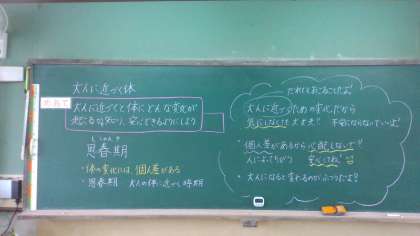 大人に近づく体
めあて
大人に近づくと体にどんな変化が
起こるか知り、安心できるようにしよう
ししゅんき
思春期
・体の変化には、個人差がある
・思春期 大人の体に近づく時期
だれにでもおこることだよ!
大人に近づくための変化だから
気にしなくても大丈夫? 不安にならなくていいよ!
・個人差があるから心配しないで!
人によってちがう 安心してね
・大人になると変わるのがふつうだよ!